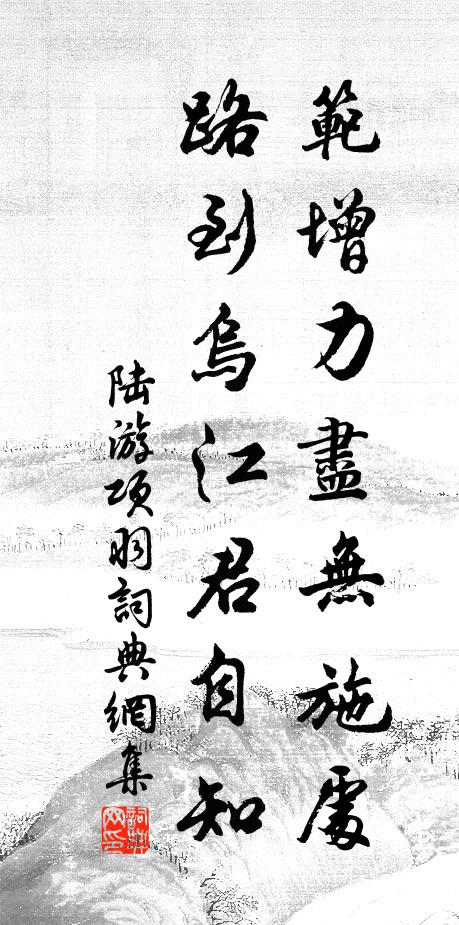 範增力盡無施處
路到烏江君自知
陸游項羽詞典網集
詞典网印